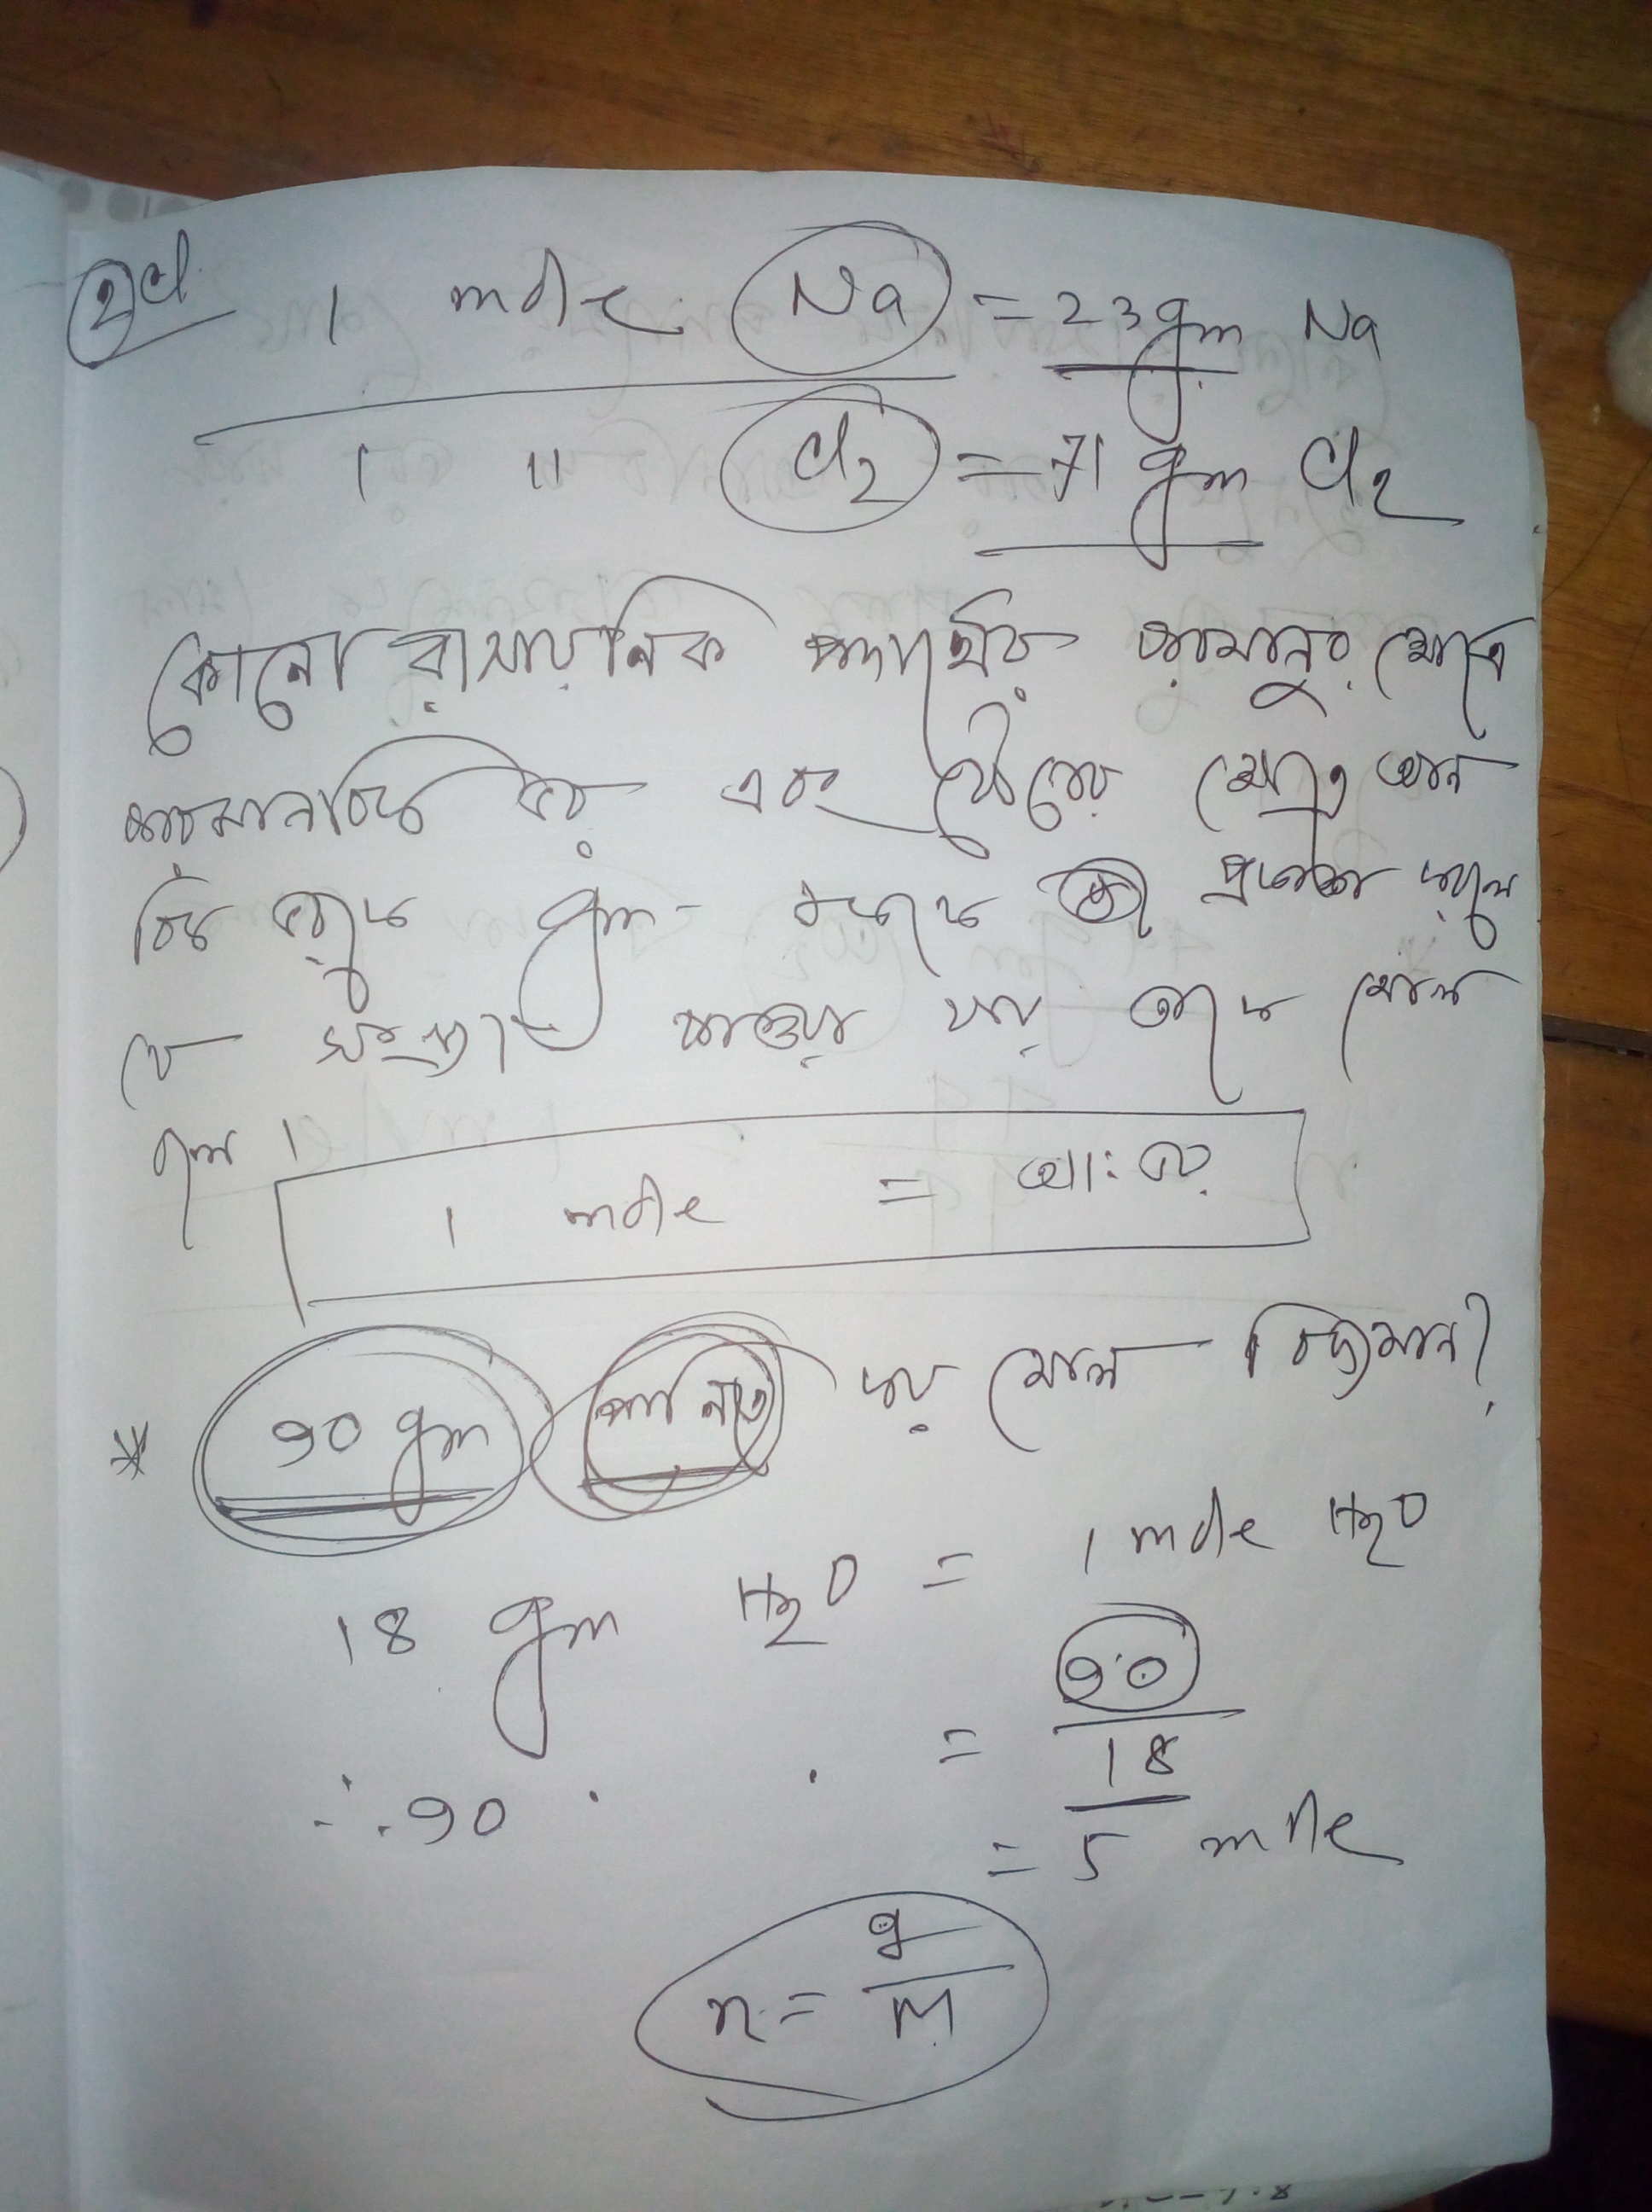 2Cl
1 mole Na = 23 gm Na
1 " Cl2 = 71 gm Cl2
কোনো রাসায়নিক পদার্থের পরমানুর ক্ষেত্রে
পারমানবিক ভর এবং যৌগের ক্ষেত্রে আন
বিক ভরকে gm এককে প্রকাশ করলে
যে সংখ্যা পাওয়া যায় তাকে মোল
বলে।
1 mole = আঃ ভর
* 90 gm পানিতে কয় মোল বিদ্যমান?
18 gm H2O = 1 mole H2O
∴ 90 . . = 90/18
= 5 mole
n = g/M